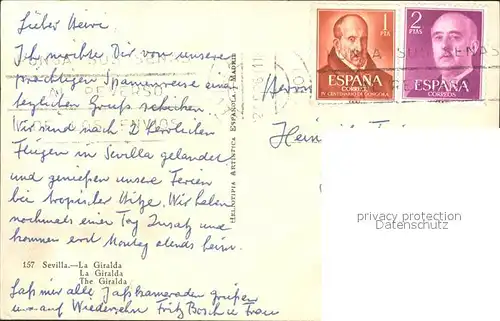 Lieber Heini
Ich möchte Dir von unserer
prächtigen Spanienreise einen
herzlichen Gruß schicken
Wir sind nach 2 herrlichen
Flügen in Sevilla gelandet
und genießen unsere Ferien
bei tropischer Hitze. Wir haben
nochmals einen Tag Zusatz und
kommen erst Montag abends heim.
157 Sevilla.—La Giralda
La Giralda
The Giralda
Laß mir alle Jaßkameraden grüßen
und auf Wiedersehn Fritz Bosch u Frau
HELIOTIPIA ARTÍSTICA ESPAÑOLA - MADRID
1
PTA
ESPAÑA
CORREOS
IV CENTENARIO DE GONGORA
2
PTAS
ESPAÑA
CORREOS
Herrn
privacy protection
Datenschutz
www.oldthing.de